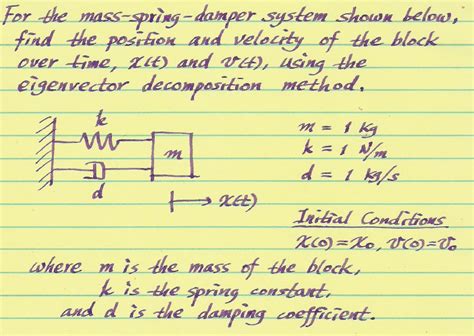 For the mass-spring-damper system shown below,
find the position and velocity of the block
over time, x(t) and v(t), using the
eigenvector decomposition method.
k
m
d
x(t)
m = 1 kg
k = 1 N/m
d = 1 kg/s
Initial Conditions
x(0)=x₀, v(0)=v₀
where m is the mass of the block,
k is the spring constant,
and d is the damping coefficient.